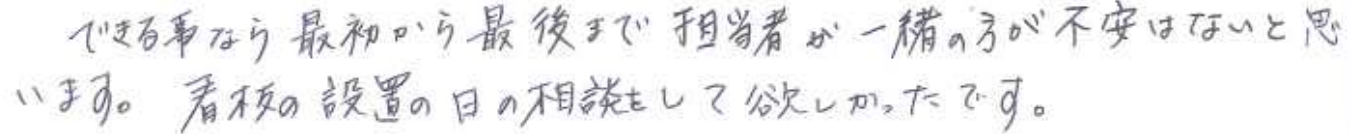 できる事なら最初から最後まで担当者が一緒の方が不安はないと思
います。看板の設置の日の相談をして欲しかったです。